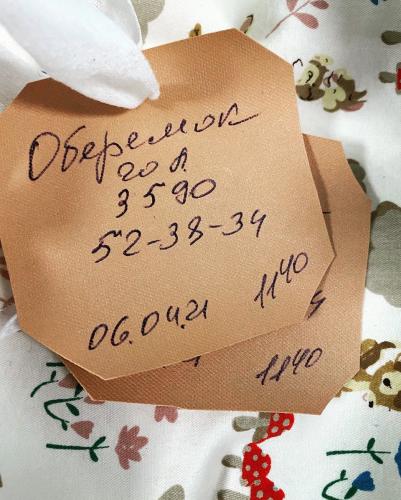 Оберемок
20 л.
3590
52-38-34
06.04.21 11⁴⁰
11⁴⁰